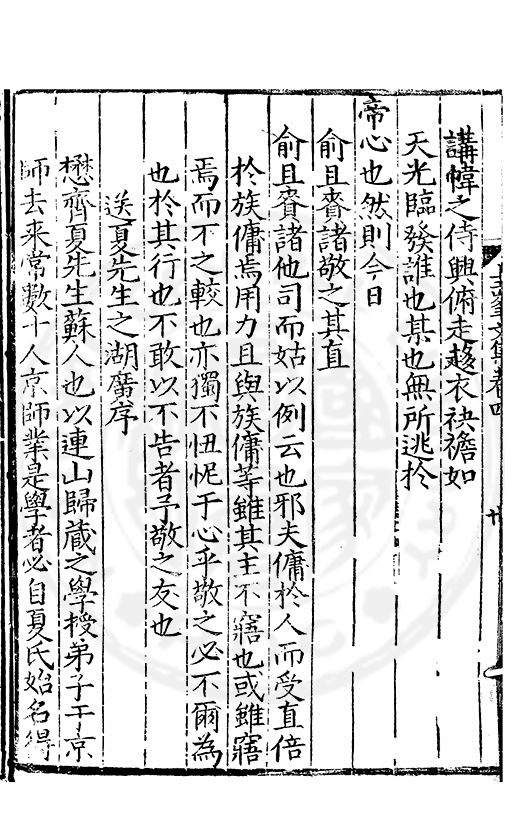 講幃之侍興俯走趍衣袂襜如
天光臨發誰也某也無所逃於
帝心也然則今日
俞且賚諸敬之其直
俞且賚諸他司而姑以例云也邪夫傭於人而受直倍
於族傭焉用力且與族傭等雖其主不寤也或雖寤
焉而不之較也亦獨不忸怩于心乎敬之必不爾為
也於其行也不敢以不告者予敬之友也
送夏先生之湖廣序
懋齊夏先生蘇人也以連山歸藏之學授弟子于京
師去來常數十人京師業是學者必自夏氏始名得
文集卷四